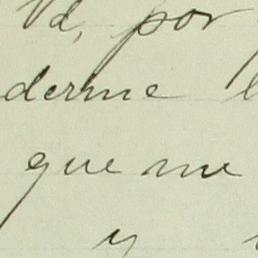 Vd, por
derme
que me
y